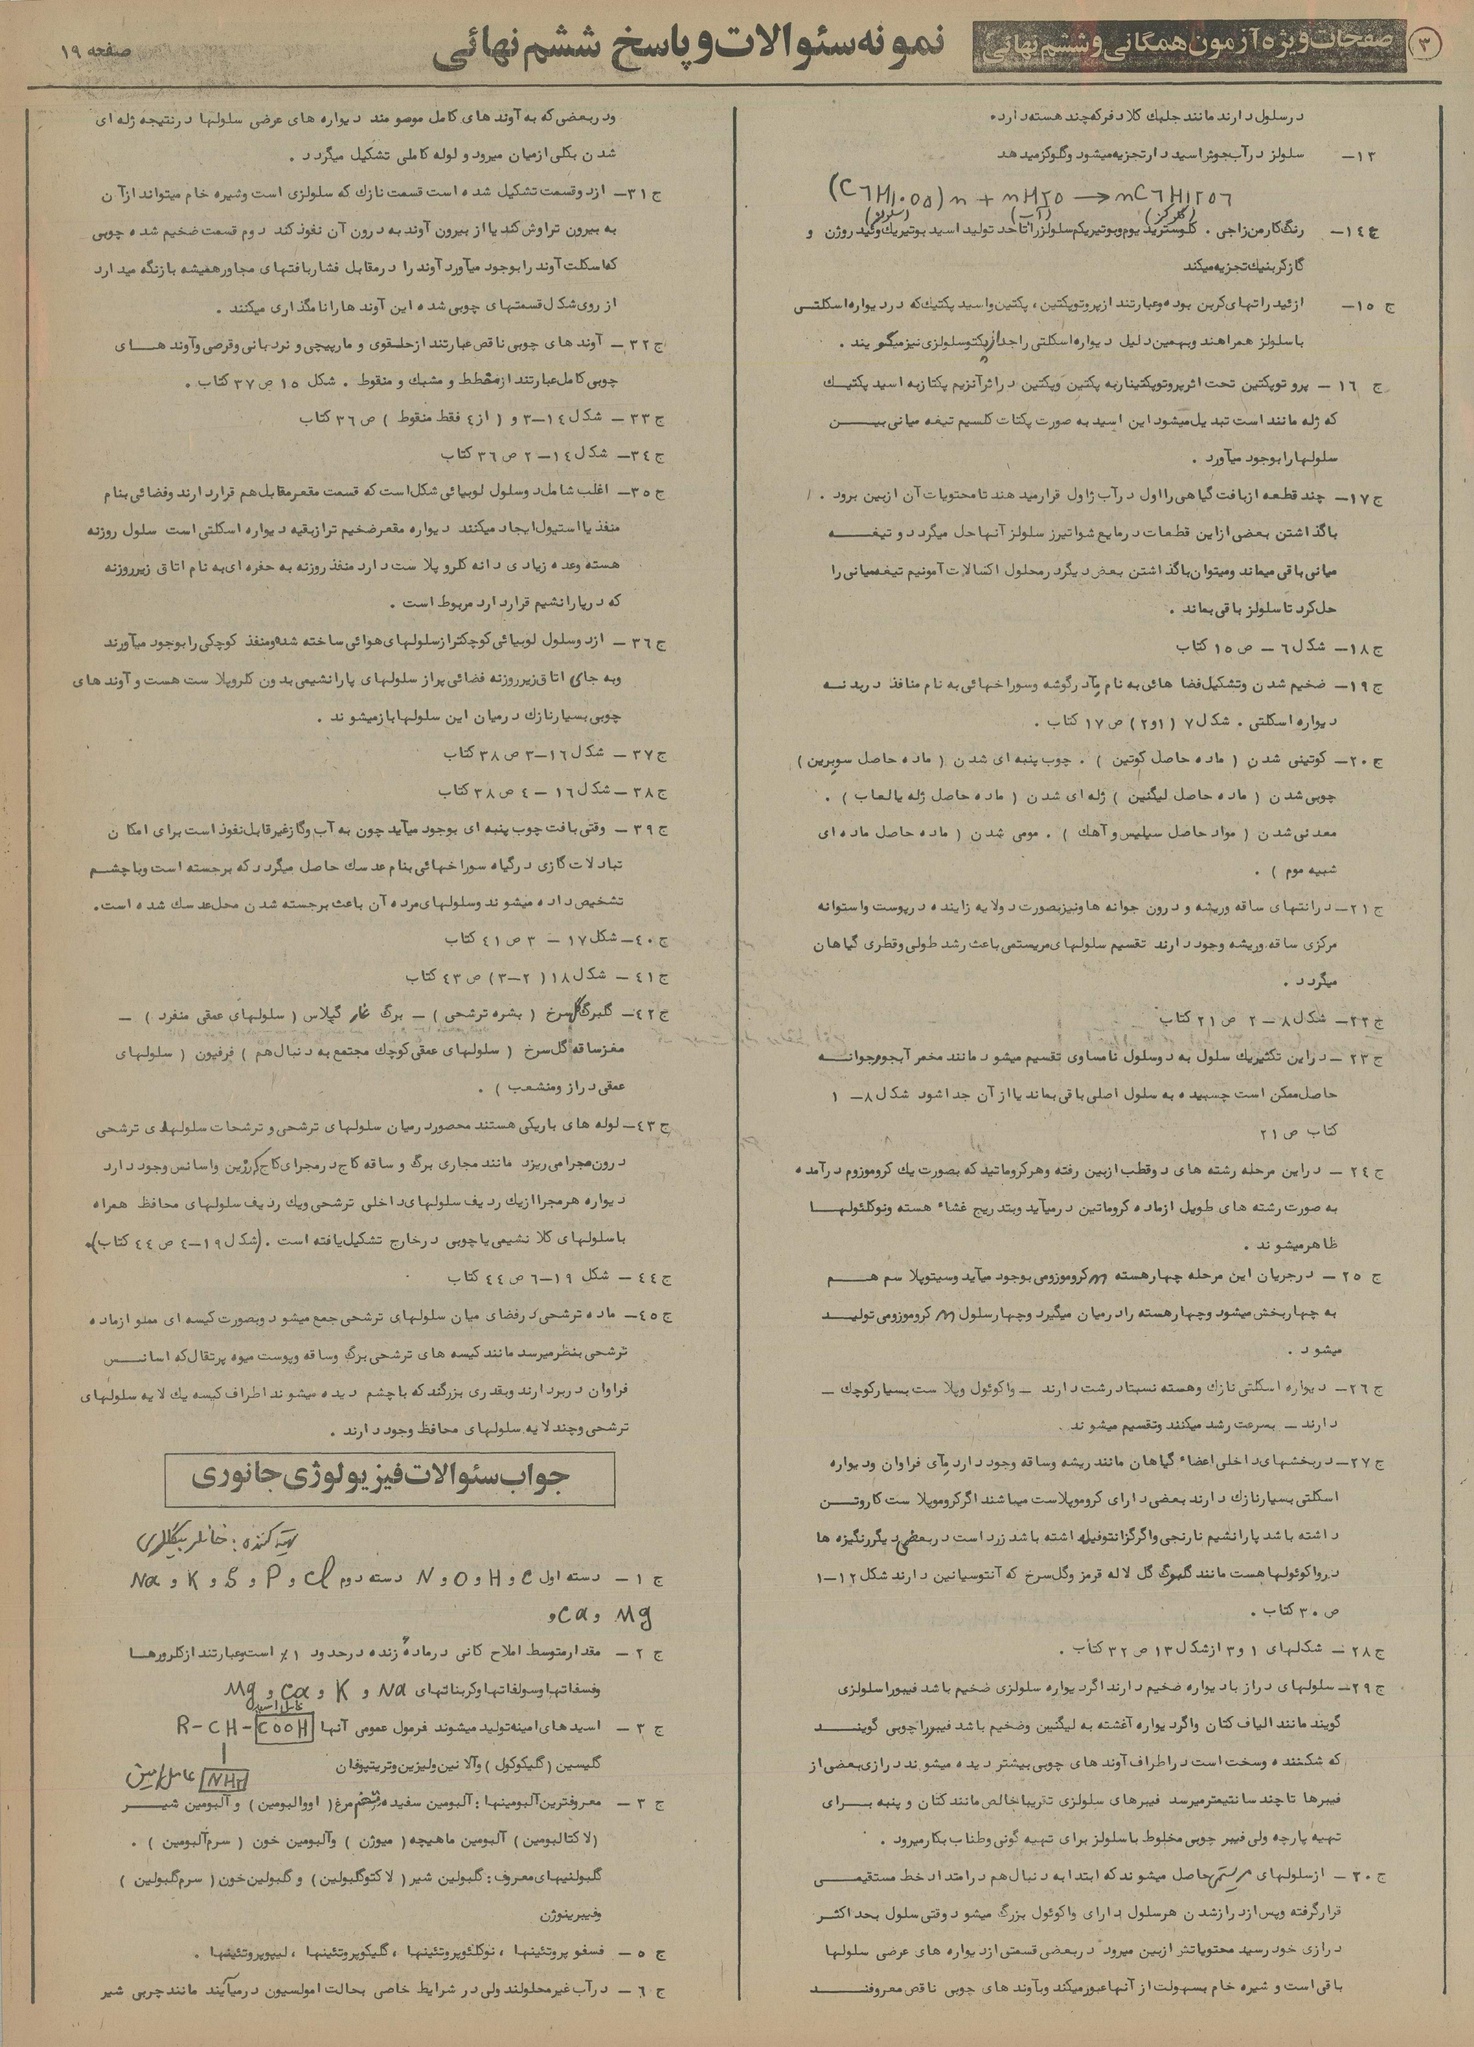 ۳
صفحات ویژه آزمون همگانی و ششم نهائی
نمونه سئوالات و پاسخ ششم نهائی
صفحه ۱۹
در سلول دارند مانند جلبك کلادفر که چند هسته دارد.
۱۳- سلولز در آب جوش اسید دار تجزیه میشود و گلوکز میدهد
(C₆H₁₀O₅)n + nH₂O → nC₆H₁₂O₆
(سلولز) (آب) (گلوکز)
ج ۱۴- رنگ کارمن زاجی . کلوستریدیوم و بوتیریکم سلولز را تا حد تولید اسید بوتیریك وئیدروژن و
گاز کربنیك تجزیه میکند
ج ۱۵- از ئیدراتهای کربن بوده و عبارتند از پروتوپکتین ، پکتین و اسید پکتیك که در دیواره اسکلتی
با سلولز همراهند و بهمین دلیل دیواره اسکلتی را جدار پکتوسلولزی نیز میگویند .
ج ۱۶- پروتوپکتین تحت اثر پروتوپکتیناز به پکتین وپکتین در اثر آنزیم پکتاز به اسید پکتیك
که ژله مانند است تبدیل میشود این اسید به صورت پکتات کلسیم تیغه میانی بین
سلولها را بوجود میآورد .
ج ۱۷- چند قطعه از بافت گیاهی را اول در آب ژاول قرار میدهند تا محتویات آن از بین برود .
با گذاشتن بعضی از این قطعات در مایع شوایتزر سلولز آنها حل میگردد و تیغه
میانی باقی میماند و میتوان با گذاشتن بعض دیگر در محلول اکسالات آمونیم تیغه میانی را
حل کرد تا سلولز باقی بماند .
ج ۱۸- شکل ۶ - ص ۱۵ کتاب
ج ۱۹- ضخیم شدن و تشکیل فضا هائی به نام مآدر گوشه و سوراخهائی به نام منافذ در بدنه
دیواره اسکلتی . شکل ۷ (۱و۲) ص ۱۷ کتاب .
ج ۲۰- کوتینی شدن ( ماده حاصل کوتین ) . چوب پنبه ای شدن ( ماده حاصل سوبرین )
چوبی شدن ( ماده حاصل لیگنین ) ژله ای شدن ( ماده حاصل ژله یا لعاب ) .
معدنی شدن ( مواد حاصل سیلیس و آهك ) . مومی شدن ( ماده حاصل ماده ای
شبیه موم ) .
ج ۲۱- در انتهای ساقه وریشه و درون جوانه ها و نیز بصورت دولایه زاینده در پوست و استوانه
مرکزی ساقه وریشه وجود دارند تقسیم سلولهای مریستمی باعث رشد طولی وقطری گیاهان
میگردد .
ج ۲۲- شکل ۸ - ۲ ص ۲۱ کتاب
ج ۲۳- در این تکثیر یك سلول به دو سلول نامساوی تقسیم میشود مانند مخمر آبجو جوانه
حاصل ممکن است چسبیده به سلول اصلی باقی بماند یا از آن جدا شود شکل ۸ - ۱
کتاب ص ۲۱
ج ۲۴- در این مرحله رشته های دوقطب از بین رفته و هر کروماتید که بصورت یك کروموزوم درآمده
به صورت رشته های طویل از ماده کروماتین درمیآید وبتدریج غشاء هسته ونوکلئولها
ظاهر میشوند .
ج ۲۵- در جریان این مرحله چهار هسته n کروموزومی بوجود میآید وسیتوپلاسم هم
به چهار بخش میشود وچهار هسته را در میان میگیرد وچهار سلول n کروموزومی تولید
میشود .
ج ۲۶- دیواره اسکلتی نازك و هسته نسبتا درشت دارند - واکوئول وپلاست بسیار کوچك -
دارند - بسرعت رشد میکنند وتقسیم میشوند
ج ۲۷- در بخشهای داخلی اعضاء گیاهان مانند ریشه وساقه وجود دارد مآی فراوان و دیواره
اسکلتی بسیار نازك دارند بعضی دارای کروموپلاست میباشند اگر کروموپلاست کاروتن
داشته باشد پارانشیم نارنجی و اگر گزانتوفیل داشته باشد زرد است در بعضی دیگر رنگیزه ها
در واکوئولها هست مانند گلبرگ گل لاله قرمز وگل سرخ که آنتوسیانین دارند شکل ۱۲-۱
ص ۳۰ کتاب .
ج ۲۸- شکلهای ۱ و۳ از شکل ۱۳ ص ۳۲ کتاب .
ج ۲۹- سلولهای دراز با دیواره ضخیم دارند اگر دیواره سلولزی ضخیم باشد فیبور اسلولزی
گویند مانند الیاف کتان و اگر دیواره آغشته به لیگنین وضخیم باشد فیبر را چوبی گویند
که شکننده وسخت است در اطراف آوند های چوبی بیشتر دیده میشوند درازی بعضی از
فیبرها تا چند سانتیمتر میرسد فیبرهای سلولزی تقریبا خالص مانند کتان و پنبه برای
تهیه پارچه ولی فیبر چوبی مخلوط با سلولز برای تهیه گونی وطناب بکار میرود .
ج ۳۰- از سلولهای مریستمی حاصل میشوند که ابتدا به دنبال هم در امتداد خط مستقیمی
قرار گرفته وپس از دراز شدن هر سلول دارای واکوئول بزرگ میشود وقتی سلول بحد اکثر
درازی خود رسید محتویاتش از بین میرود در بعضی قسمتی از دیواره های عرضی سلولها
باقی است و شیره خام بسهولت از آنها عبور میکند وبآوند های چوبی ناقص معروفند
ودر بعضی که به آوند های کامل موسومند دیواره های عرضی سلولها در نتیجه ژله ای
شدن بکلی از میان میرود و لوله کاملی تشکیل میگردد .
ج ۳۱- از دو قسمت تشکیل شده است قسمت نازك که سلولزی است وشیره خام میتواند از آن
به بیرون تراوش کند یا از بیرون آوند به درون آن نفوذ کند دوم قسمت ضخیم شده چوبی
که اسکلت آوند را بوجود میآورد آوند را در مقابل فشار بافتهای مجاور همیشه باز نگه میدارد
از روی شکل قسمتهای چوبی شده این آوند ها را نامگذاری میکنند .
ج ۳۲- آوند های چوبی ناقص عبارتند از حلقوی و مارپیچی و نردبانی وقرصی و آوند های
چوبی کامل عبارتند از مخطط و مشبك و منقوط . شکل ۱۵ ص ۳۷ کتاب .
ج ۳۳- شکل ۱۴-۳ و ( از ۴ فقط منقوط ) ص ۳۶ کتاب
ج ۳۴- شکل ۱۴ - ۲ ص ۳۶ کتاب
ج ۳۵- اغلب شامل دو سلول لوبیائی شکل است که قسمت مقعر مقابل هم قرار دارند وفضائی بنام
منفذ یا استیول ایجاد میکنند دیواره مقعر ضخیم تر از بقیه دیواره اسکلتی است سلول روزنه
هسته وعده زیادی دانه کلروپلاست دارد منفذ روزنه به حفره ای به نام اتاق زیر روزنه
که در پارانشیم قرار دارد مربوط است .
ج ۳۶- از دو سلول لوبیائی کوچکتر از سلولهای هوائی ساخته شده ومنفذ کوچکی را بوجود میآورند
وبه جای اتاق زیر روزنه فضائی پر از سلولهای پارانشیمی بدون کلروپلاست هست و آوند های
چوبی بسیار نازك در میان این سلولها باز میشوند .
ج ۳۷- شکل ۱۶-۳ ص ۳۸ کتاب
ج ۳۸- شکل ۱۶ - ۴ ص ۳۸ کتاب
ج ۳۹- وقتی بافت چوب پنبه ای بوجود میآید چون به آب وگاز غیر قابل نفوذ است برای امکان
تبادلات گازی در گیاه سوراخهائی بنام عدسك حاصل میگردد که برجسته است وبا چشم
تشخیص داده میشوند وسلولهای مرده آن باعث برجسته شدن محل عدسك شده است.
ج ۴۰- شکل ۱۷ - ۳ ص ۴۱ کتاب
ج ۴۱- شکل ۱۸( ۲-۳) ص ۴۳ کتاب
ج ۴۲- گلبرگ گل سرخ ( بشره ترشحی ) - برگ غار گیلاس ( سلولهای عمقی منفرد ) -
مغز ساقه گل سرخ ( سلولهای عمقی کوچك مجتمع به دنبال هم ) فرفیون ( سلولهای
عمقی دراز ومنشعب ) .
ج ۴۳- لوله های باریکی هستند محصور در میان سلولهای ترشحی و ترشحات سلولهای ترشحی
درون مجرا می ریزد مانند مجاری برگ و ساقه کاج در مجرای کاج رزین واسانس وجود دارد
دیواره هر مجرا از یك ردیف سلولهای داخلی ترشحی ویك ردیف سلولهای محافظ همراه
با سلولهای کلانشیمی یا چوبی در خارج تشکیل یافته است . (شکل ۱۹-۴ ص ۴۴ کتاب).
ج ۴۴- شکل ۱۹-۶ ص ۴۴ کتاب
ج ۴۵- ماده ترشحی در فضای میان سلولهای ترشحی جمع میشود وبصورت کیسه ای مملو از ماده
ترشحی بنظر میرسد مانند کیسه های ترشحی برگ وساقه وپوست میوه پرتقال که اسانس
فراوان در بر دارند وبقدری بزرگند که با چشم دیده میشوند اطراف کیسه یك لایه سلولهای
ترشحی وچند لایه سلولهای محافظ وجود دارند .
جواب سئوالات فیزیولوژی جانوری
تهیه کننده :
ج ۱- دسته اول C و H و O و N دسته دوم Cl و P و S و K و Na
Mg و Ca و
ج ۲- مقدار متوسط املاح کانی در ماده زنده در حدود ۱٪ است وعبارتند از کلرورها
وفسفاتها وسولفاتها وکربناتهای Na و K و Ca و Mg
عامل اسید
ج ۳- اسید های امینه تولید میشوند فرمول عمومی آنها R-CH-COOH
گلیسین (گلیکوکول ) وآلانین ولیزین وتریپتوفان
NH₂ عامل امین
ج ۳- معروفترین آلبومینها : آلبومین سفیده تخم مرغ ( اووالبومین) و آلبومین شیر
(لاکتالبومین ) آلبومین ماهیچه ( میوژن ) وآلبومین خون ( سرم آلبومین ) .
گلبولنیهای معروف : گلبولین شیر ( لاکتوگلبولین) و گلبولین خون ( سرم گلبولین )
وفیبرینوژن
ج ۵- فسفو پروتئینها ، نوکلئوپروتئینها ، گلیکوپروتئینها ، لیپوپروتئینها .
ج ۶- در آب غیر محلولند ولی در شرایط خاصی بحالت امولسیون درمیآیند مانند چربی شیر